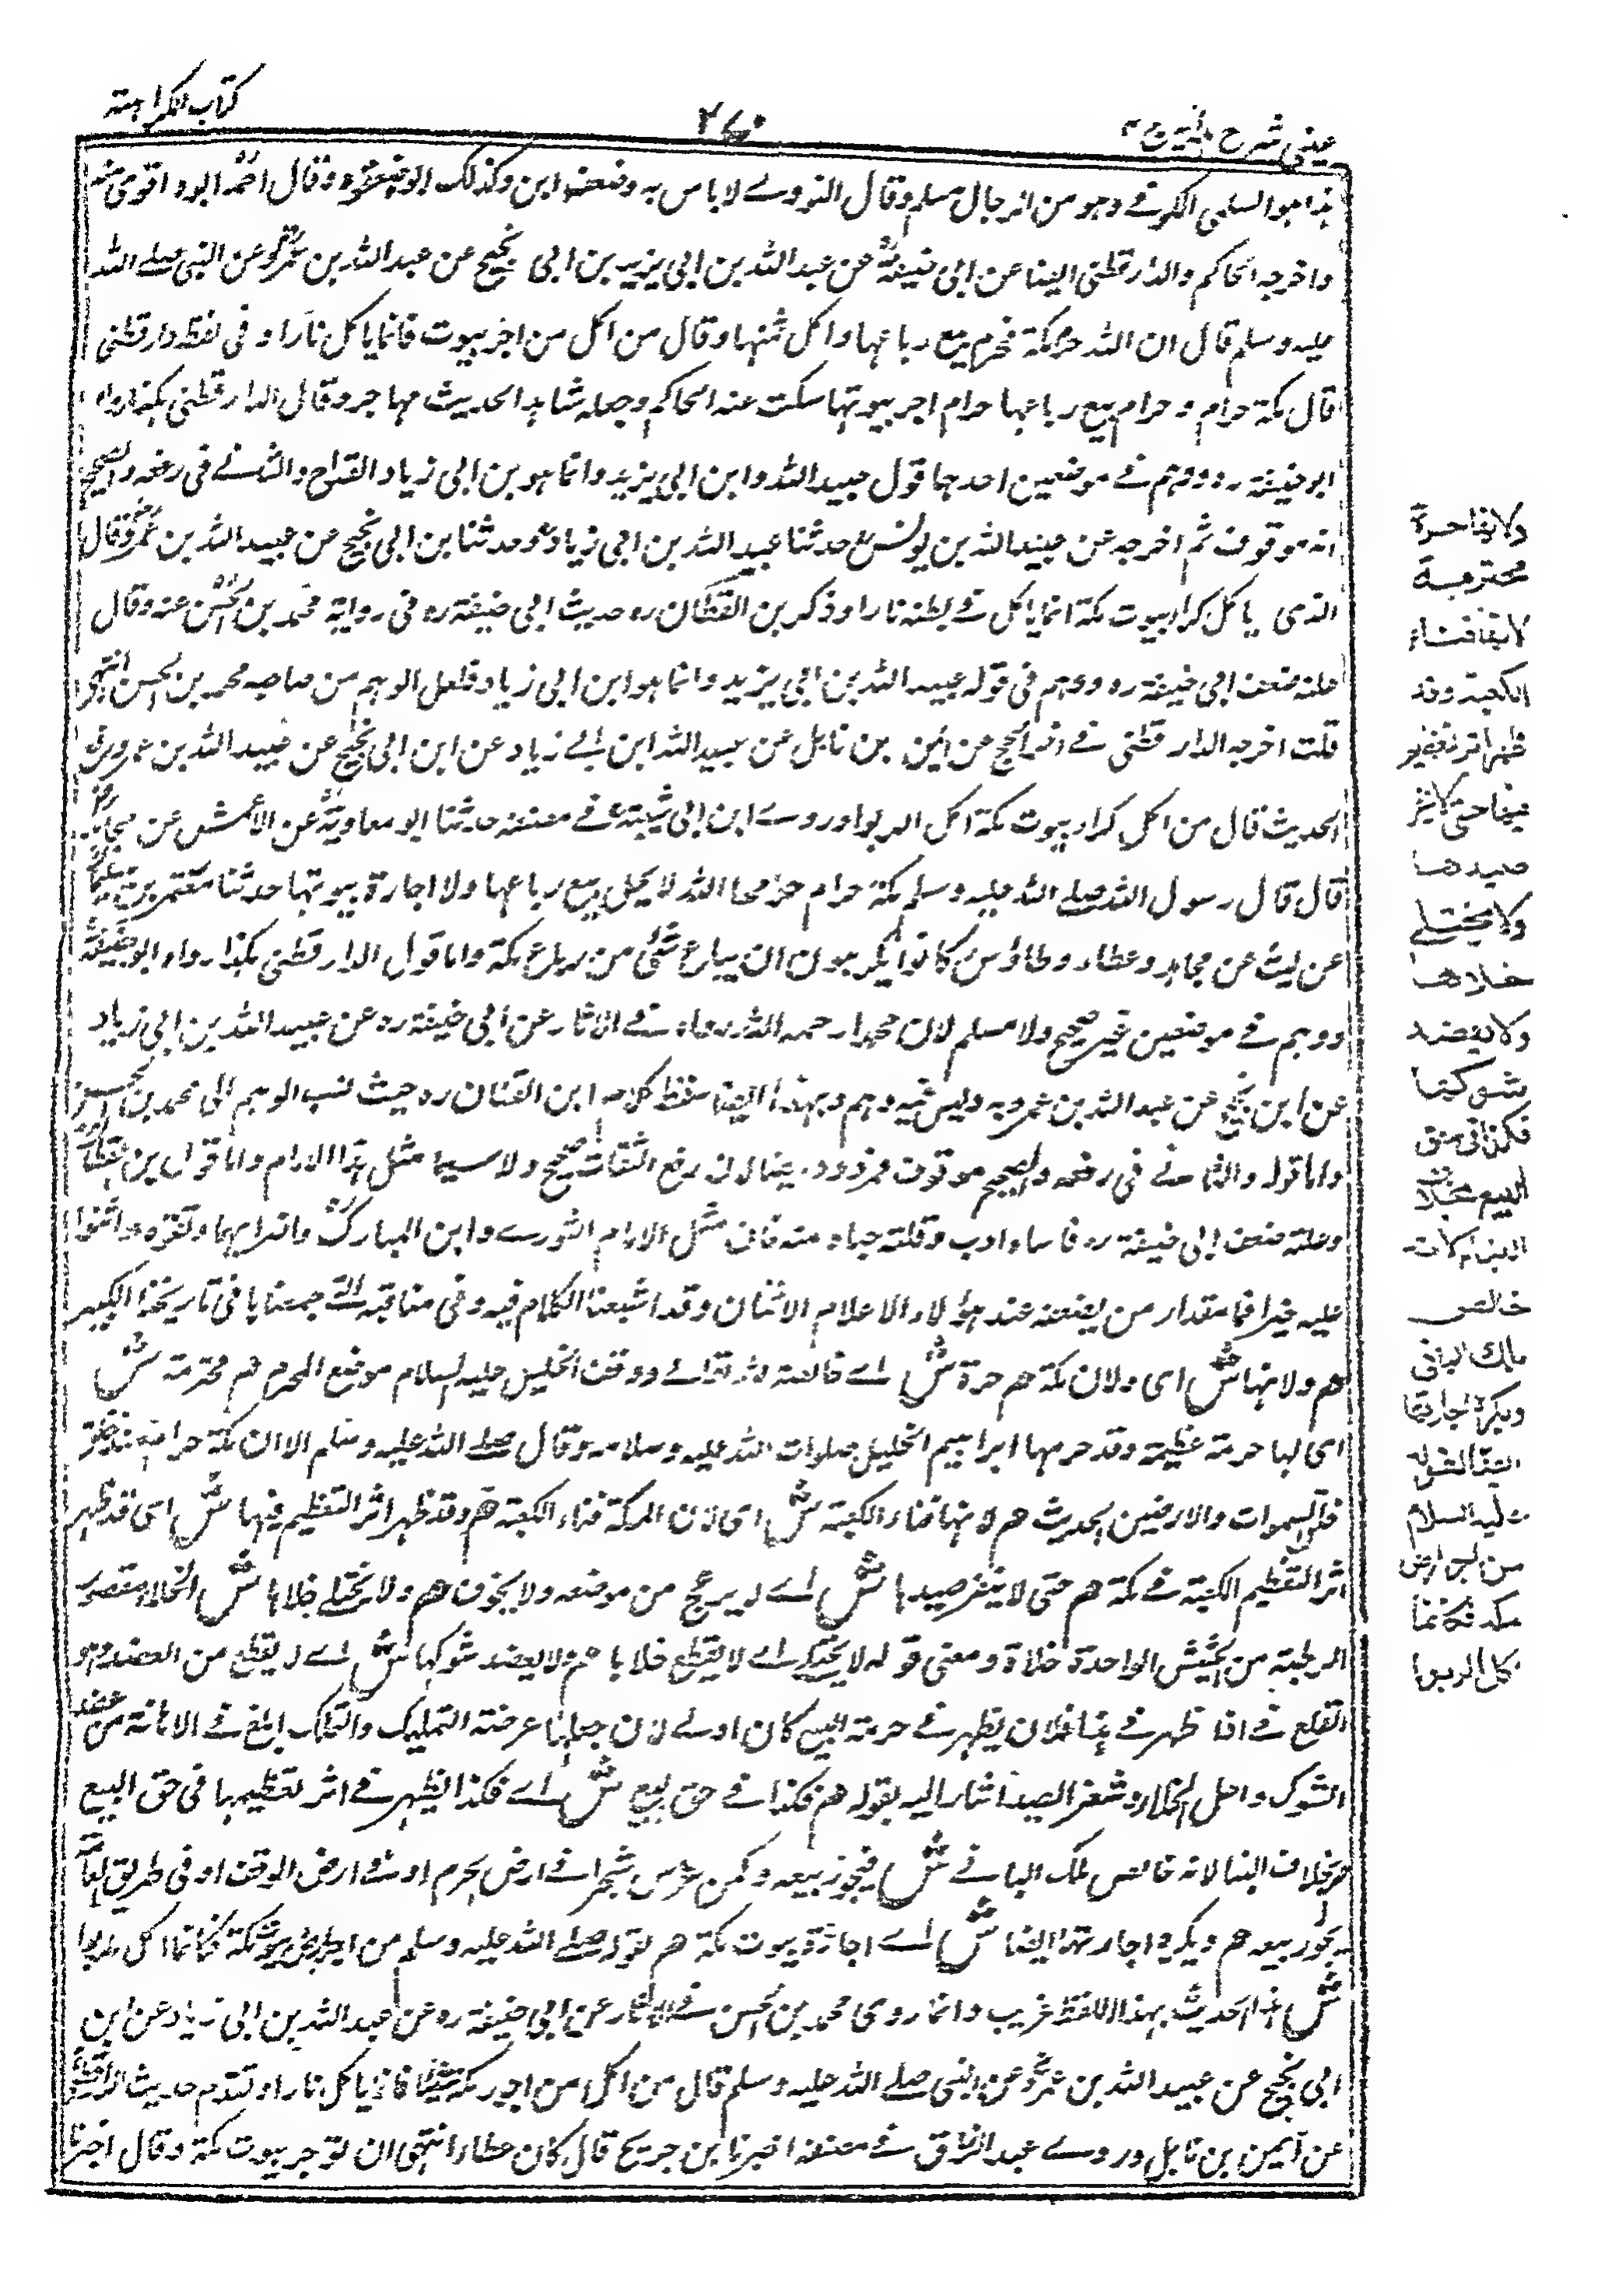 كتاب الكراهية
٢٧٠
عيني شرح هداية ج ٤
هذا هو السلمي الكوفي وهو من الرجال مسلم وقال النووي لا باس به وضعفه ابن وكذلك ابو وقال احمد ابوه اقوى منه
واخرجه الحاكم والدارقطني ايضا عن ابي حنيفة عن عبد الله بن ابي يزيد بن ابي نجيح عن عبد الله بن عمرو عن النبي صلى الله
عليه وسلم قال ان الله حرم مكة فحرم بيع رباعها واكل ثمنها وقال من اكل من اجر بيوت فانما ياكل نارا و في لفظ دارقطني
قال مكة حرام و حرام بيع رباعها حرام اجر بيوتها سكت عنه الحاكم وجعله شاهد الحديث مهاجر وقال الدارقطني هكذا رواه
ابو حنيفة ره ووهم في موضعين احدها قول عبيد الله وابن ابي يزيد وانما هو بن ابي زياد القداح والثاني في رفعه والصحيح
انه موقوف ثم اخرجه عن عبيد الله بن يونس حدثنا عبيد الله بن ابي زياد وحدثنا بن ابي نجيح عن عبيد الله بن عمرو قال
الذي ياكل كراء بيوت مكة انما ياكل في بطنه نارا وذكر بن القطان ره حديث ابي حنيفة ره في رواية محمد بن الحسن عنه وقال
علته ضعف ابي حنيفة ره ووهم في قوله عبيد الله بن ابي يزيد وانما هو ابن ابي زياد فلعل الوهم من صاحبه محمد بن الحسن انتهى
قلت اخرجه الدارقطني في اخر الحج عن ايمن بن نابل عن عبيد الله ابن ابي زياد عن ابن ابي نجيح عن عبيد الله بن عمرو رفع
الحديث قال من اكل كراء بيوت مكة اكل الربوا وروى ابن ابي شيبة في مصنفه حدثنا ابو معاوية عن الاعمش عن مجاهد
قال قال رسول الله صلى الله عليه وسلم مكة حرام حرمها الله لا يحل بيع رباعها ولا اجارة بيوتها حدثنا معتمر بن سليمان
عن ليث عن مجاهد وعطاء وطاؤس كانوا يكرهون ان يباع شئ من رباع مكة واما قول الدارقطني هكذا رواه ابو حنيفة
ووهم في موضعين غير صحيح ولا مسلم لان محمدا رحمه الله رواه في الاثار عن ابي حنيفة ره عن عبيد الله بن ابي زياد
عن ابن نجيح عن عبد الله بن عمرو به وليس فيه وهم وبهذا ايضا سقط كلام ابن القطان ره حيث نسب الوهم الى محمد بن الحسن
واما قوله والثاني في رفعه والصحيح موقوف فمردود ايضا لان رفع الثقات صحيح ولا سيما مثل هذا الامام واما قول بن القطان
وعلته ضعف ابي حنيفة ره فاساءة ادب وقلة حياء منه فان مثل الامام الثوري وابن المبارك واضرابهما وثقوه واثنوا
عليه خيرا فما مقدار من يضعفه عند هؤلاء الاعلام الاثنان وقد اشبعنا الكلام فيه وفي مناقبه التي جمعناها في تاريخنا الكبير
هم ولانها ش اى ولان مكة هم حرة ش اى خالصة لله تعالى ووقف الخليل عليه السلام موضع الحرم هم محترمة ش
اى لها حرمة عظيمة وقد حرمها ابراهيم الخليل صلوات الله عليه وسلامه وقال صلى الله عليه وسلم الا ان مكة حرام منذ خلق
خلق السموات والارضين الحديث هم لانها فناء الكعبة ش اى لان المكة فناء الكعبة هم وقد ظهر اثر التعظيم فيها ش اى قد ظهر
اثر التعظيم الكعبة في مكة هم حتى لا ينفر صيدها ش اى لا يزعج من موضعه ولا يخوف هم ولا يختلى خلاها ش الخلا مقصور
الرطبة من الحشيش الواحدة خلاة ومعنى قوله لا يختلى اى لا يقطع خلاها هم ولا يعضد شوكها ش اى لا يقطع من العضد وهو
القطع في اذا ظهر في هنا فلان يظهر في حرمة البيع كان اولى لان جعلها عرضة التمليك والتملك ابلغ في الاهانة من عضد
الشوك و اصل الخلا و شعر الصيد اشار اليه بقوله هم فكذا في حق البيع ش اى فكذا يظهر في اثر تعظيمها في حق البيع
هم بخلاف البناء لانه خالص ملك الباني ش فيجوز بيعه وكمن غرس شجرا في ارض الحرم او في ارض الوقف او في طريق العامة
يجوز بيعه هم ويكره اجارتها ايضا ش اى اجارة بيوت مكة هم لقوله صلى الله عليه وسلم من اجر ارض مكة فكانما اكل الربوا
ش هذا الحديث بهذا اللفظ غريب وانما روى محمد بن الحسن في الاثار عن ابي حنيفة ره عن عبد الله بن ابي زياد عن ابن
ابي نجيح عن عبيد الله بن عمرو عن النبي صلى الله عليه وسلم قال من اكل من اجور مكة شيئا فانما ياكل نارا وتقدم حديث الدارقطني
عن ايمن بن نابل وروى عبد الرزاق في مصنفه اخبرنا بن جريج قال كان عطاء انتهى ان تؤجر بيوت مكة وقال اخبرنا
ولانها حرة
محترمة
لانها فناء
الكعبة وقد
ظهر اثر تعظيم
فيها حتى لا ينفر
صيدها
ولا يختلى
خلاها
ولا يعضد
شوكها
فكذا في حق
البيع بخلاف
البناء لانه
خالص
ملك الباني
ويكره اجارتها
ايضا لقوله
عليه السلام
من اجر ارض
مكة فكانما
اكل الربوا